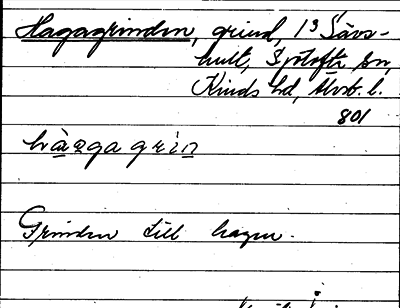 Hagagrinden, grind, 1³ Sävs-
hult, Sjötofta sn,
Kinds hd, Älvsb. l.
801
hàzgagrìn
Grinden till hagen.